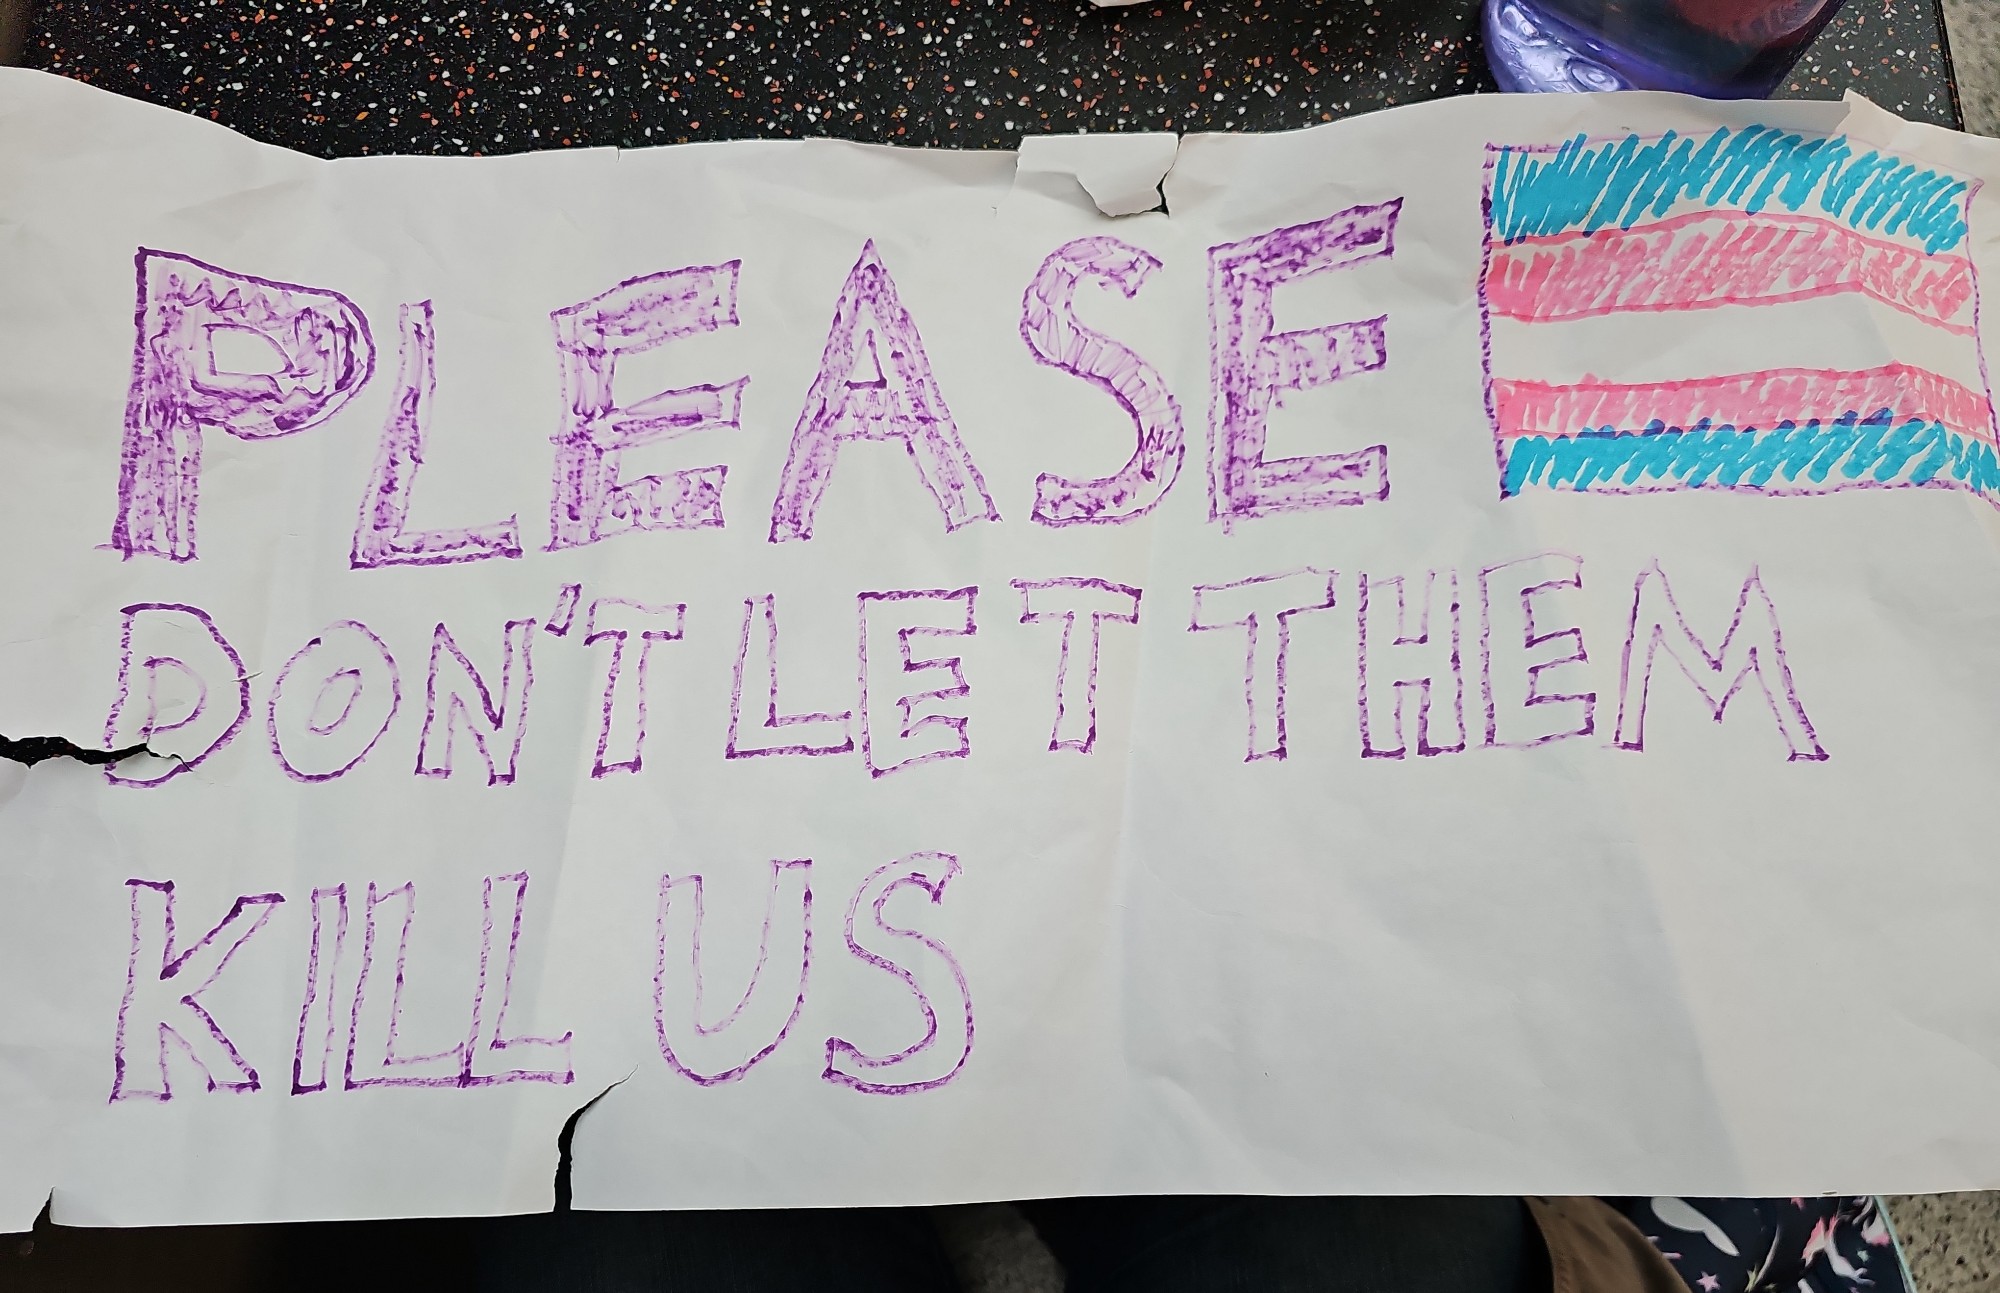 PLEASE
DON'T LET THEM
KILL US